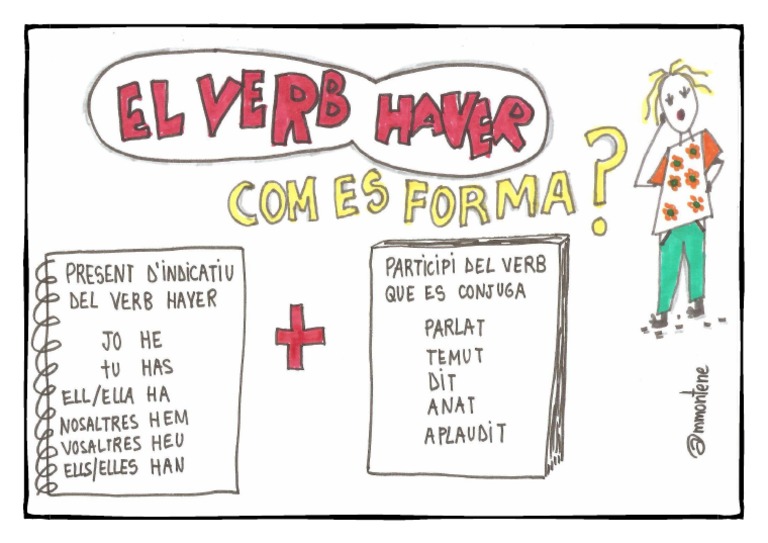 EL VERB HAVER
COM ES FORMA?
PRESENT D'INDICATIU
DEL VERB HAVER
JO HE
tU HAS
ELL/ELLA HA
NOSALTRES HEM
VOSALTRES HEU
ELLS/ELLES HAN
+
PARTICIPI DEL VERB
QUE ES CONJUGA
PARLAT
TEMUT
DIT
ANAT
APLAUDIT
@mmontene